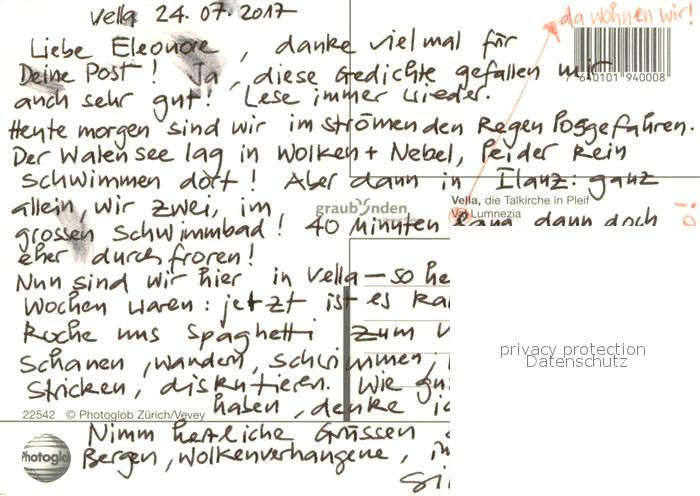 Vella 24.07.2017
da wohnen wir!
Liebe Eleonore, danke vielmal für
Deine Post! Ja, diese Gedichte gefallen mir
7 640101 940008
auch sehr gut! Lese immer wieder.
Heute morgen sind wir im strömenden Regen losgefahren.
Der Walensee lag in Wolken + Nebel, leider kein
Schwimmen dort! Aber dann in Ilanz: ganz
allein wir zwei, im
graubünden
Vella, die Talkirche in Pleif
Val Lumnezia
grossen Schwimmbad! 40 Minuten lang, dann doch
eher durchfroren!
Nun sind wir hier in Vella – so
Wochen waren: jetzt ist es
koche uns Spaghetti zum
schauen, wandern, schwimmen,
stricken, diskutieren. Wie
haben, denke
22542 © Photoglob Zürich/Vevey
Nimm herzliche Grüssen
Photoglob
Bergen, wolkenverhangene,
privacy protection
Datenschutz